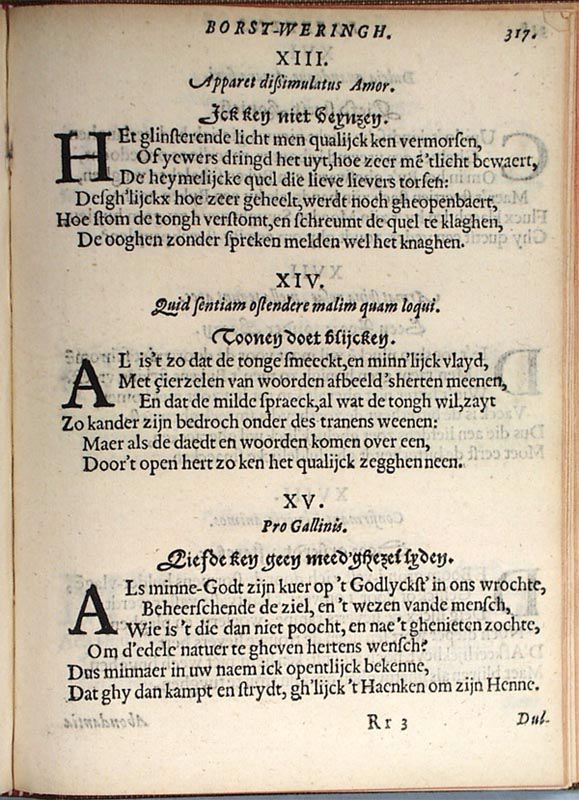 BORST-WERINGH. 317.
XIII.
Apparet dißimulatus Amor.
Ick ken niet veynzen.
HEt glinsterende licht men qualijck ken vermorsen,
Of yewers dringd het uyt, hoe zeer mē 'tlicht bewaert,
De heymelijcke quel die lieve lievers torsen:
Desgh'lijckx hoe zeer geheelt, werdt noch gheopenbaert,
Hoe stom de tongh verstomt, en schreumt de quel te klaghen,
De ooghen zonder spreken melden wel het knaghen.
XIV.
Quid sentiam ostendere malim quam loqui.
Toonen doet blijcken.
AL is't zo dat de tonge smeeckt, en minn'lijck vlayd,
Met çierzelen van woorden afbeeld 'sherten meenen,
En dat de milde spraeck, al wat de tongh wil, zayt
Zo kander zijn bedroch onder des tranens weenen:
Maer als de daedt en woorden komen over een,
Door't open hert zo ken het qualijck zegghen neen.
XV.
Pro Gallinis.
Liefde ken geen meed'ghezel lyden.
ALs minne-Godt zijn kuer op 't Godlyckst' in ons wrochte,
Beheerschende de ziel, en 't wezen vande mensch,
Wie is 't die dan niet poocht, en nae 't ghenieten zochte,
Om d'edele natuer te gheven hertens wensch?
Dus minnaer in uw naem ick opentlijck bekenne,
Dat ghy dan kampt en strydt, gh'lijck 't Haenken om zijn Henne.
Rr 3 Dul-